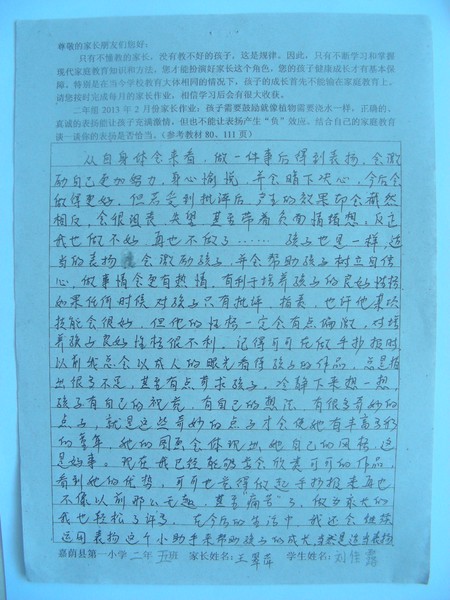 尊敬的家长朋友们您好:
只有不懂教的家长,没有教不好的孩子,这是规律。因此,只有不断学习和掌握
现代家庭教育知识和方法,您才能扮演好家长这个角色,您的孩子健康成长才有基本保
障。特别是在当今学校教育大体相同的情况下,孩子的成长首先不能输在家庭教育上。
请您按时完成每月的家长作业,相信学习后会有很大收获。
二年级 2013 年 2 月份家长作业:孩子需要鼓励就像植物需要浇水一样,正确的、
真诚的表扬能让孩子充满激情,但也不能让表扬产生“负”效应。结合自己的家庭教育
谈一谈你的表扬是否恰当。(参考教材 80、111 页)
从自身体会来看,做一件事后得到表扬,会激
励自己更加努力,身心愉悦,并会暗下决心,今后会
做得更好,但若受到批评后,产生的效果却会截然
相反,会很沮丧、失望,甚至带着负面情绪想,反正
我也做不好,再也不做了……孩子也是一样,适
当的表扬会激励孩子,并会帮助孩子树立自信
心,做事情会更有热情,有利于培养孩子的良好性格
如果任何时候对孩子只有批评、指责,也许他某项
技能会很好,但他的性格一定会有点偏激,对培
养孩子良好性格很不利。记得可可在做手抄报时
以前我总会以成人的眼光看待孩子的作品,总是指
出很多不足,甚至有点苛求孩子,冷静下来想一想,
孩子有自己的视觉,有自己的想法,有很多奇妙的
点子,就是这些奇妙的点子才会使她有丰富多彩
的童年,她的图画会体现出她自己的风格,这
是好事。现在我已经能够学会欣赏可可的作品,
看到她的优势,可可也觉得做起手抄报来再也
不像以前那么无趣,甚至痛苦了,做为家长的
我也轻松了许多,在今后的生活中,我还会继续
运用表扬这个小助手来帮助孩子的成长,当然是适当表扬
嘉荫县第一小学二年五班 家长姓名:王翠萍 学生姓名:刘佳露